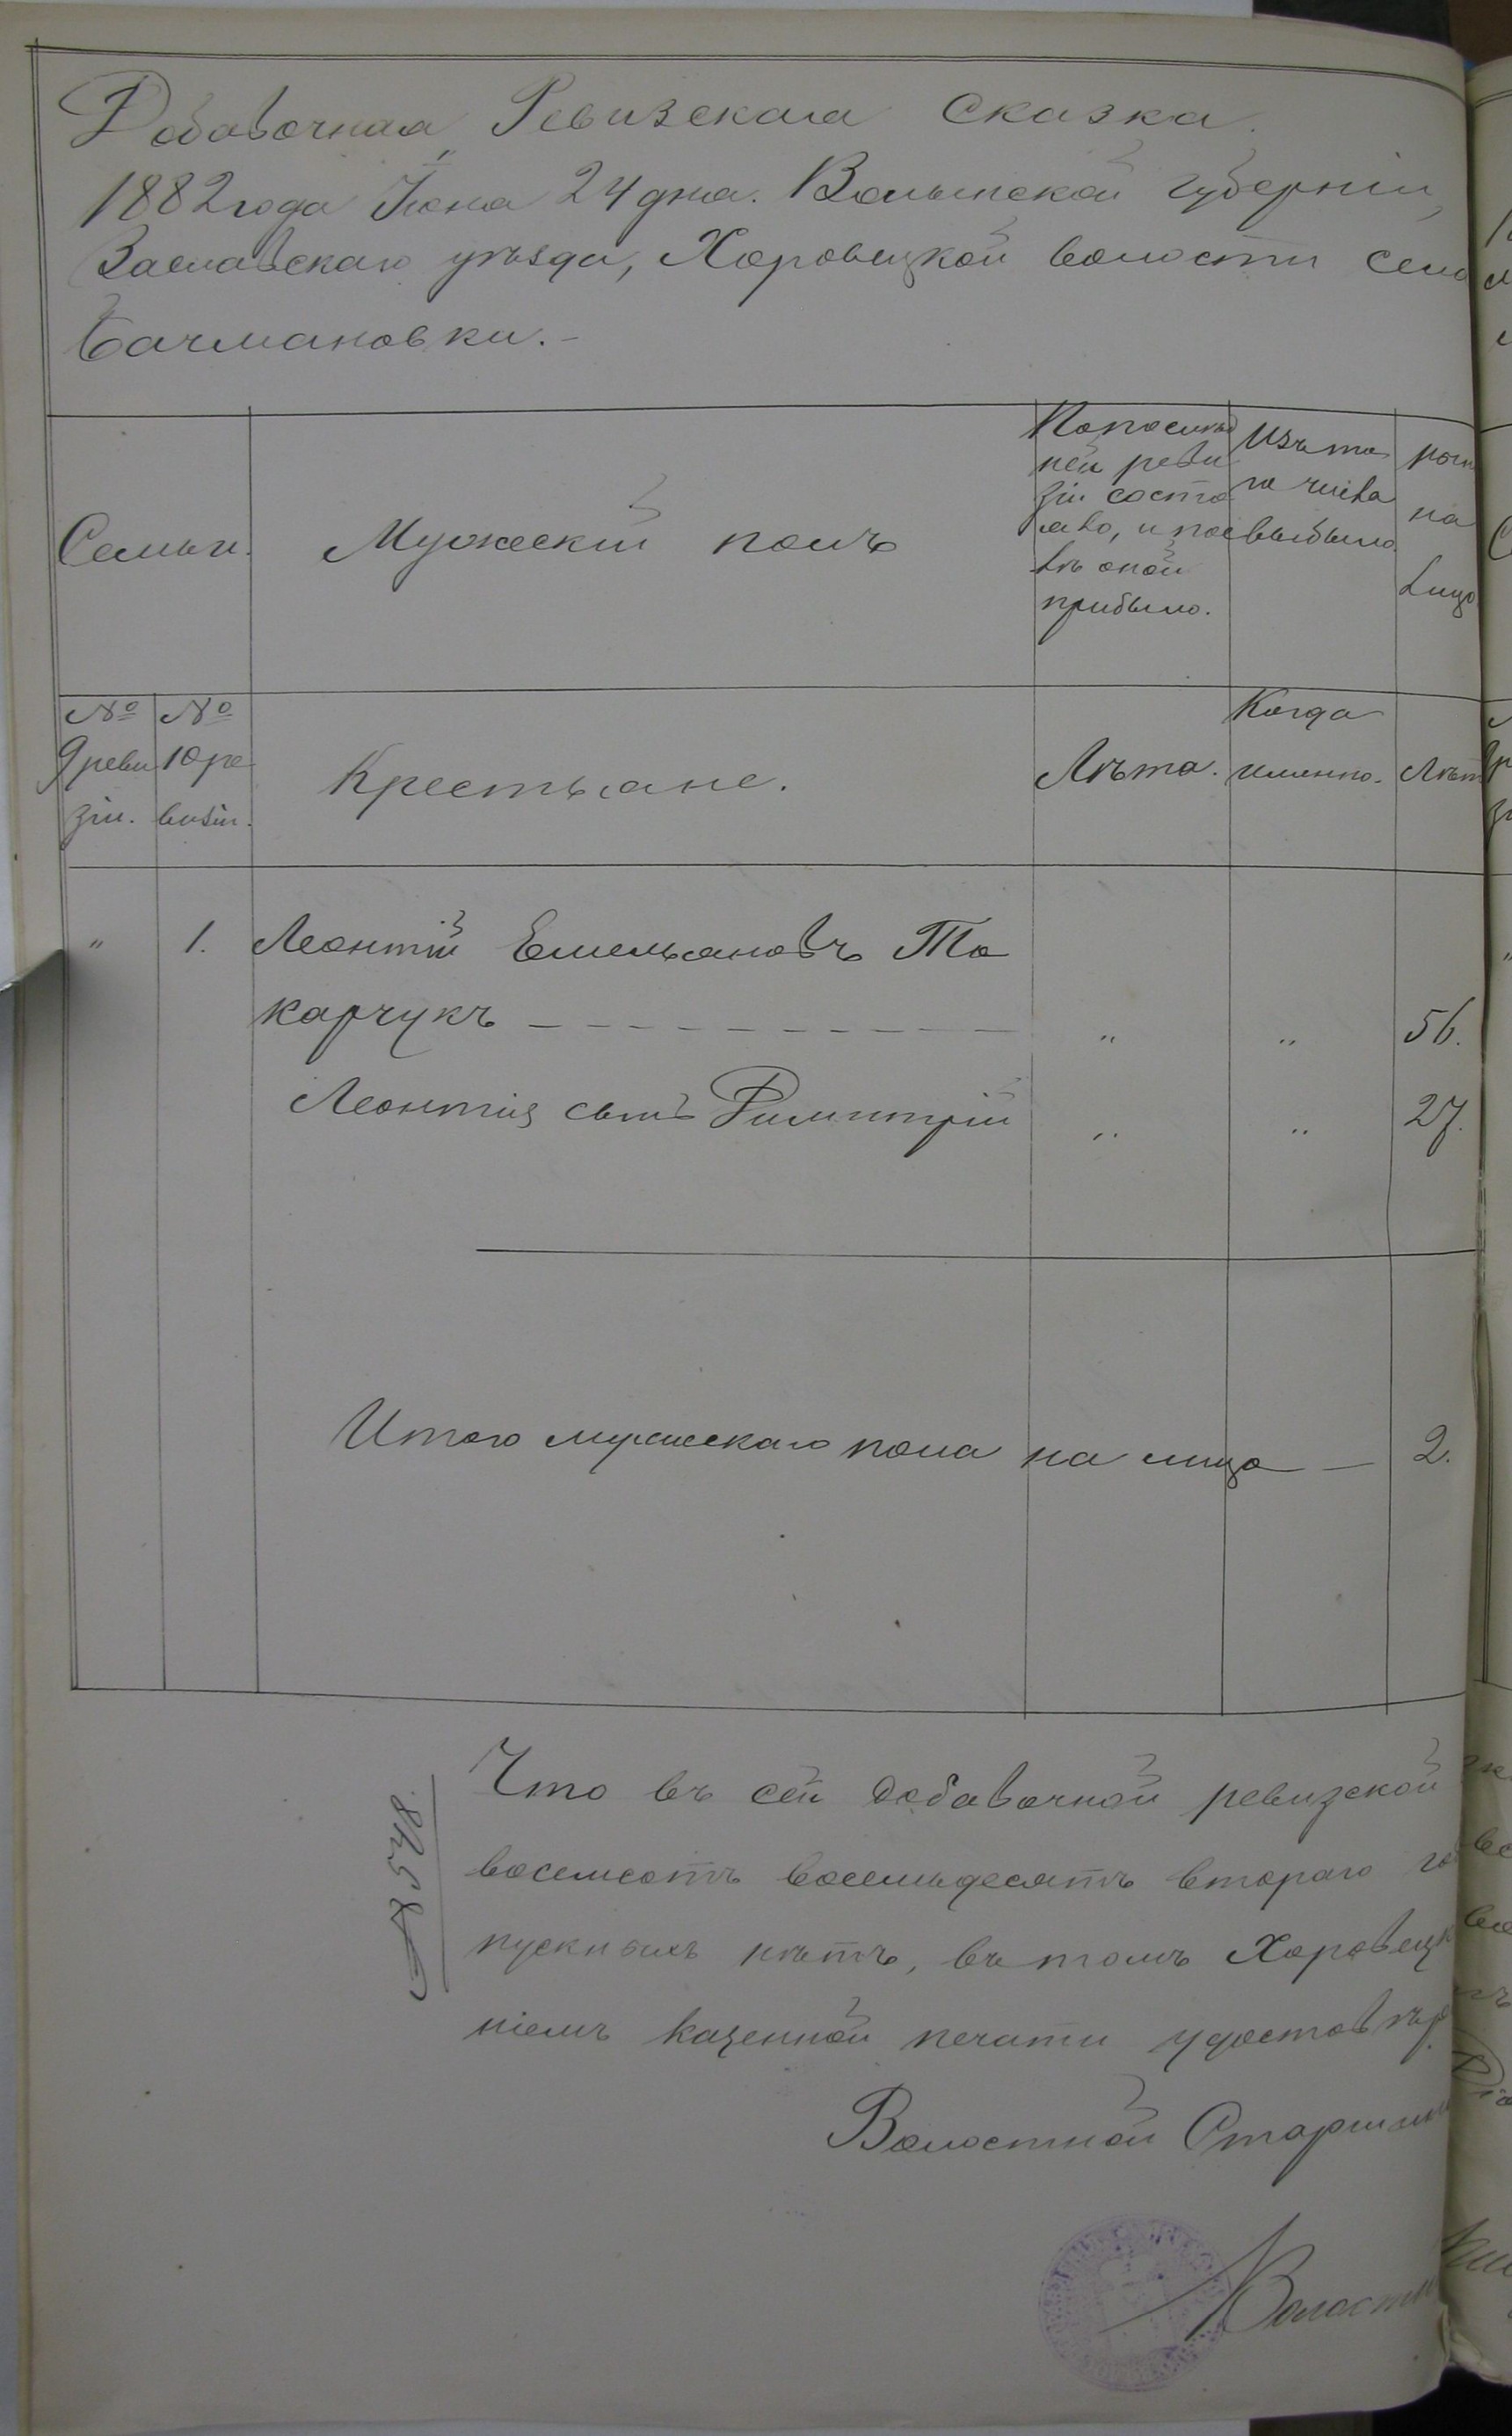 Добавочная Ревизская Сказка.
1882 года Іюня 24 дня. Волынской губерніи,
Заславскаго уѣзда, Хоровецкой волости села
Бачмановки.-
Семьи.
Мужескій полъ
По послѣд
ней реви
зіи состо
яло, и пос
лѣ оной
прибыло.
Изъ то
го числа
выбыло.
на
лицо
№ 9 реви зіи.
№ 10 ре визіи.
Крестьяне.
Лѣта.
Когда
именно.
Лѣта
" 1. Леонтій Емельяновъ То
карчукъ - - - - - - - - - - " " 56.
Леонтія сынъ Димитрій " " 27.
Итого мужескаго пола на лицо — 2.
Что въ сей добавочной ревизской
восемсотъ восемьдесятъ втораго го
пускныхъ нѣтъ, въ томъ Хоровецк
ніемъ казенной печати удостовѣр
Волостной Старшина
№ 548.
Волостн